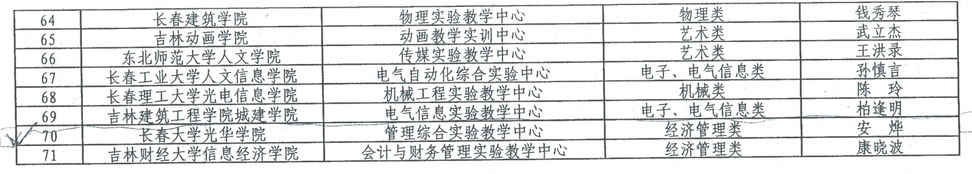 64 长春建筑学院 物理实验教学中心 物理类 钱秀琴
65 吉林动画学院 动画教学实训中心 艺术类 武立杰
66 东北师范大学人文学院 传媒实验教学中心 艺术类 王洪录
67 长春工业大学人文信息学院 电气自动化综合实验中心 电子、电气信息类 孙慎言
68 长春理工大学光电信息学院 机械工程实验教学中心 机械类 陈 玲
69 吉林建筑工程学院城建学院 电气信息实验教学中心 电子、电气信息类 柏逢明
70 长春大学光华学院 管理综合实验教学中心 经济管理类 安 烨
71 吉林财经大学信息经济学院 会计与财务管理实验教学中心 经济管理类 康晓波